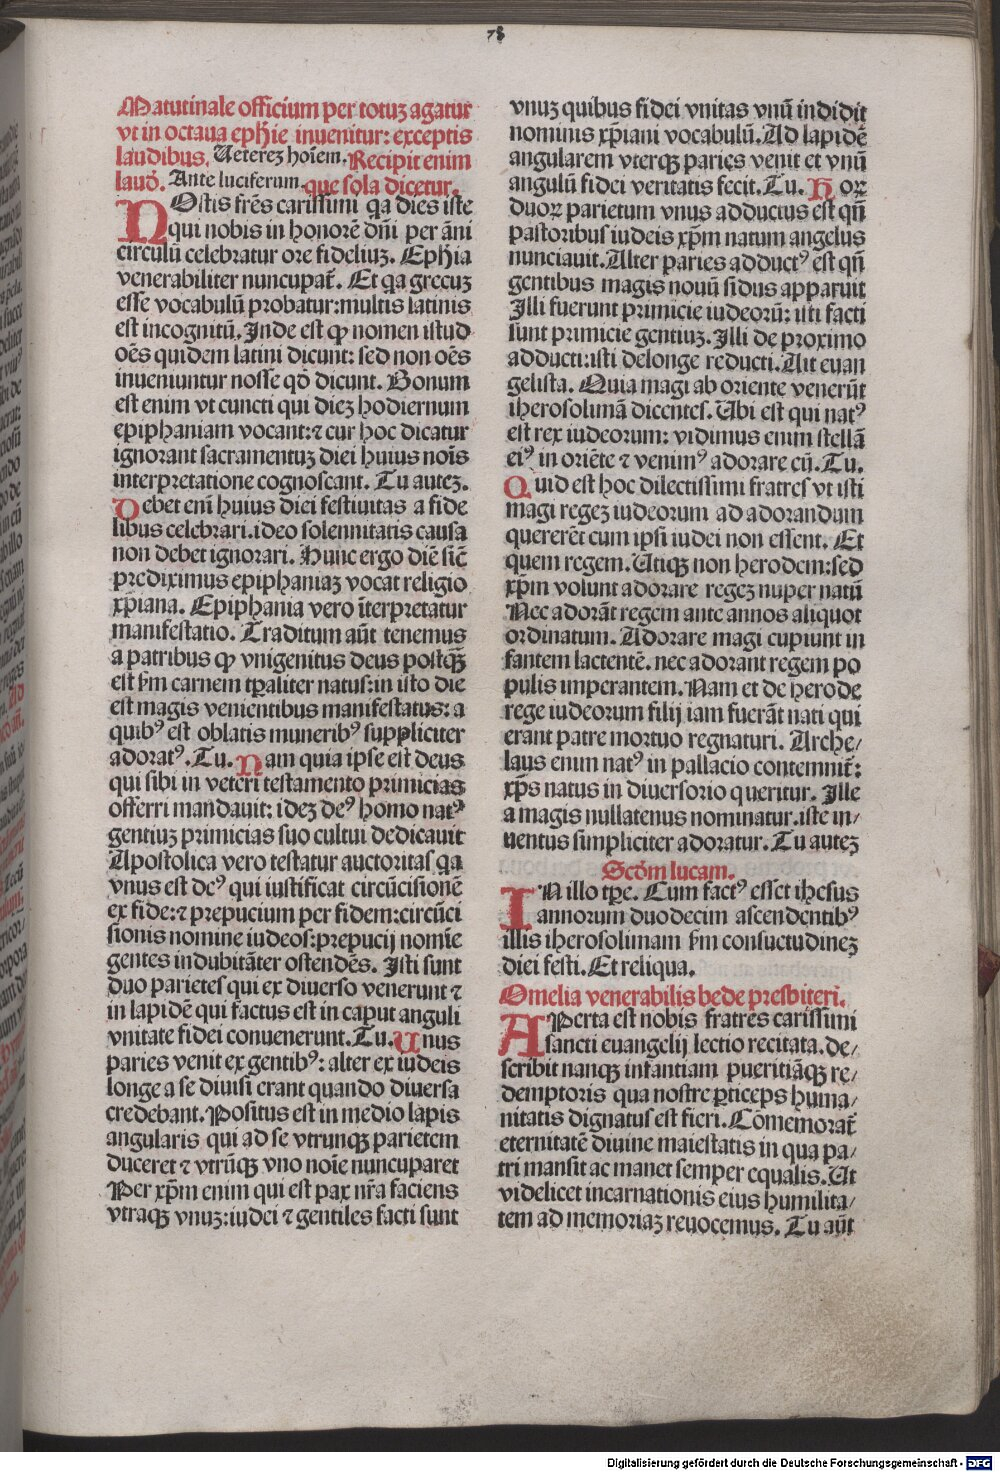 78
Matutinale officium per totuʒ agatur
vt in octaua ephie inuenitur: exceptis
laudibus. Ueterez hoīem. Recipit enim
laud̄. Ante luciferum. que sola dicetur.
NOstis frēs carissimi qa dies iste
qui nobis in honorē dñi per āni
circulū celebratur ore fideliuʒ. Ephia
venerabiliter nuncupat̄. Et qa grecuʒ
esse vocabulū probatur: multis latinis
est incognitū. Inde est ꝙ nomen istud
oēs quidem latini dicunt: sed non oēs
inueniuntur nosse qd̄ dicunt. Bonum
est enim vt cuncti qui dieʒ hodiernum
epiphaniam vocant: ⁊ cur hoc dicatur
ignorant sacramentuʒ diei huius noīs
interpretatione cognoscant. Tu auteʒ.
Debet enī huius diei festiuitas a fide
libus celebrari. ideo solennitatis causa
non debet ignorari. Hunc ergo diē siē
prediximus epiphaniaʒ vocat religio
xp̄iana. Epiphania vero īterpretatur
manifestatio. Traditum aūt tenemus
a patribus ꝙ vnigenitus deus postꝗ̄
est ẜm carnem tp̄aliter natus: in isto die
est magis venientibus manifestatus: a
quibꝰ est oblatis muneribꝰ suppliciter
adoratꝰ. Tu. Nam quia ipse est deus
qui sibi in veteri testamento primicias
offerri mandauit: ideʒ deꝰ homo natꝰ
gentiuʒ primicias suo cultui dedicauit
Apostolica vero testatur auctoritas qa
vnus est deꝰ qui iustificat circūcisionē
ex fide: ⁊ prepucium per fidem: circūci
sionis nomine iudeos: prepucij nomīe
gentes indubitāter ostendēs. Isti sunt
duo parietes qui ex diuerso venerunt ⁊
in lapidē qui factus est in caput anguli
vnitate fidei conuenerunt. Tu. Unus
paries venit ex gentibꝰ: alter ex iudeis
longe a se diuisi erant quando diuersa
credebant. Positus est in medio lapis
angularis qui ad se vtrunqʒ parietem
duceret ⁊ vtrūqʒ vno noīe nuncuparet
Per xp̄m enim qui est pax nr̄a faciens
vtraqʒ vnuʒ: iudei ⁊ gentiles facti sunt
vnuʒ quibus fidei vnitas vnū indidit
nominis xp̄iani vocabulū. Ad lapidē
angularem vterqʒ paries venit et vnū
angulū fidei veritatis fecit. Tu. Hoꝝ
duoꝝ parietum vnus adductus est qn̄
pastoribus iudeis xp̄m natum angelus
nunciauit. Alter paries adductꝰ est qn̄
gentibus magis nouū sidus apparuit
Illi fuerunt primicie iudeorū: isti facti
sunt primicie gentiuʒ. Illi de proximo
adducti: isti delonge reducti. Ait euan
gelista. Quia magi ab oriente venerūt
iherosolimā dicentes. Ubi est qui natꝰ
est rex iudeorum: vidimus enim stellā
eiꝰ in oriēte ⁊ venimꝰ adorare eū. Tu.
Quid est hoc dilectissimi fratres vt isti
magi regeʒ iudeorum ad adorandum
quererēt cum ipsi iudei non essent. Et
quem regem. Utiqʒ non herodem: sed
xp̄m volunt adorare regeʒ nuper natū
Nec adorāt regem ante annos aliquot
ordinatum. Adorare magi cupiunt in
fantem lactentē. nec adorant regem po
pulis imperantem. Nam et de herode
rege iudeorum filij iam fuerāt nati qui
erant patre mortuo regnaturi. Arche/
laus enim natꝰ in pallacio contemnit̄:
xp̄s natus in diuersorio queritur. Ille
a magis nullatenus nominatur. iste in/
uentus simpliciter adoratur. Tu auteʒ
Scdm̄ lucam.
IN illo tp̄e. Cum factꝰ esset ihesus
annorum duodecim ascendentibꝰ
illis iherosolimam ẜm consuetudineʒ
diei festi. Et reliqua.
Omelia venerabilis bede presbiteri.
APerta est nobis fratres carissimi
sancti euangelij lectio recitata. de/
scribit nanqʒ infantiam pueritiāqʒ re/
demptoris qua nostre ꝑticeps huma/
nitatis dignatus est fieri. Cōmemorat̄
eternitatē diuine maiestatis in qua pa/
tri mansit ac manet semper equalis. Ut
videlicet incarnationis eius humilita/
tem ad memoriaʒ reuocemus. Tu aūt
Digitalisierung gefördert durch die Deutsche Forschungsgemeinschaft - DFG